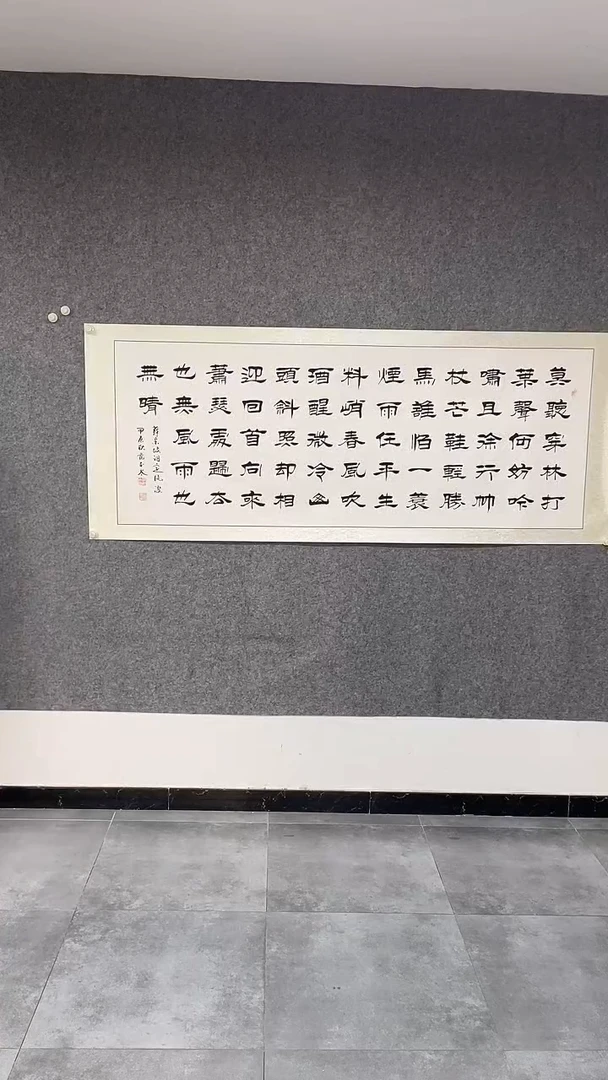 莫聽穿林打
葉聲何妨吟
嘯且徐行竹
杖芒鞋輕勝
馬誰怕一蓑
煙雨任平生
料峭春風吹
酒醒微冷山
頭斜照却相
迎回首向來
蕭瑟處歸去
也無風雨也
無晴
蘇東坡詞定風波
甲辰秋